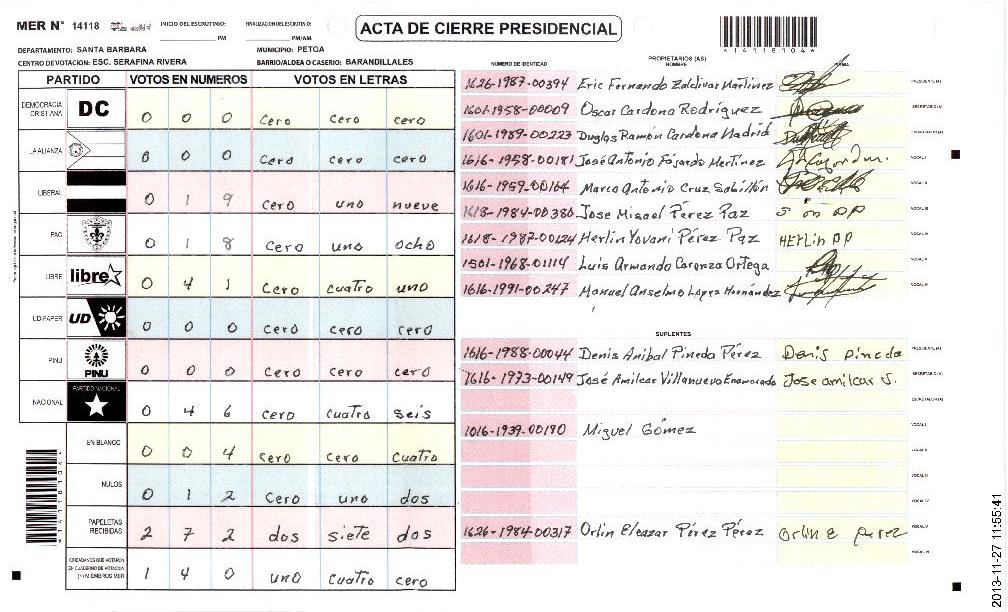 MER N° 14118
INICIO DEL ESCRUTINIO: PM
FINALIZACION DEL ESCRUTINIO: PM/AM
ACTA DE CIERRE PRESIDENCIAL
DEPARTAMENTO: SANTA BARBARA MUNICIPIO: PETOA
CENTRO DE VOTACION: ESC. SERAFINA RIVERA BARRIO/ALDEA O CASERIO: BARANDILLALES
PARTIDO VOTOS EN NUMEROS VOTOS EN LETRAS
DEMOCRACIA CRISTIANA DC 0 0 0 cero cero cero
LA ALIANZA 0 0 0 cero cero cero
LIBERAL 0 1 9 cero uno nueve
PAC 0 1 8 cero uno ocho
LIBRE libre 0 4 1 cero cuatro uno
UD-FAPER UD 0 0 0 cero cero cero
PINU PINU 0 0 0 cero cero cero
NACIONAL PARTIDO NACIONAL 0 4 6 cero cuatro seis
EN BLANCO 0 0 4 sero cero cuatro
NULOS 0 1 2 cero uno dos
PAPELETAS RECIBIDAS 2 7 2 dos siete dos
CIUDADANOS QUE VOTARON EN CUADERNO DE VOTACION (+) MIEMBROS MER 1 4 0 uno cuatro cero
NUMERO DE IDENTIDAD PROPIETARIOS (AS) NOMBRE FIRMA
1626-1987-00394 Eric Fernando Zaldivar Martinez PRESIDENTE(A)
1601-1958-00009 Oscar Cardona Rodríguez SECRETARIO(A)
1601-1989-00223 Duglas Ramón Cardona Madrid ESCRUTADOR(A)
1616-1958-00181 José Antonio Fajardo Martínez VOCAL I
1616-1959-00164 Marco Antonio Cruz Sabillón VOCAL II
1618-1984-00380 Jose Misael Pérez Paz VOCAL III
1618-1987-00124 Herlin Yovani Pérez Paz HErLin PP VOCAL IV
1501-1968-01114 Luis Armando Caranza Ortega VOCAL V
1616-1991-00247 Manuel Anselmo Lopez Hernández VOCAL VI
SUPLENTES
1616-1988-00044 Denis Anibal Pineda Pérez Denis pineda PRESIDENTE(A)
1616-1973-00149 José Amilcar Villanueva Enamorado Jose amilcar V. SECRETARIO(A)
ESCRUTADOR(A)
1016-1939-00190 Miguel Gómez VOCAL I
VOCAL II
VOCAL III
VOCAL IV
1626-1984-00317 Orlin Eleazar Pérez Pérez orlin E perez VOCAL V
VOCAL VI
2013-11-27 11:55:41